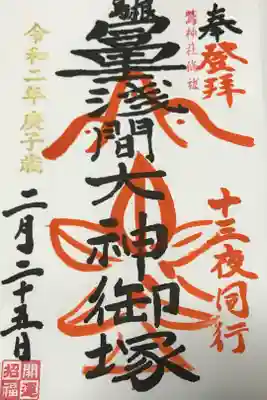 奉登拝
鷲神社修祓
十三夜同行
淺間大神御塚
令和二年庚子歳
二月二十五日
開運
招福